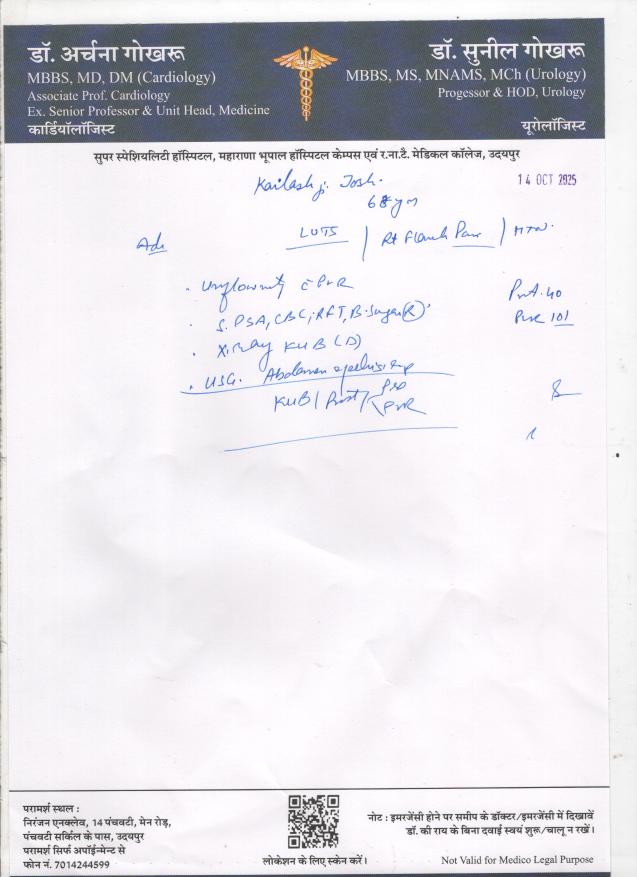 डॉ. अर्चना गोखरू
MBBS, MD, DM (Cardiology)
Associate Prof. Cardiology
Ex. Senior Professor & Unit Head, Medicine
कार्डियॉलॉजिस्ट
डॉ. सुनील गोखरू
MBBS, MS, MNAMS, MCh (Urology)
Progessor & HOD, Urology
यूरोलॉजिस्ट
सुपर स्पेशियलिटी हॉस्पिटल, महाराणा भूपाल हॉस्पिटल केम्पस एवं र.ना.टै. मेडिकल कॉलेज, उदयपुर
Kailash ji Joshi
14 OCT 2025
LUTS / Rt Flank Pain / HTN.
Adv
. Uroflowmetry c PVR
. S. PSA, CBC, RFT, B. Sugar (R)
PVR 101
. X-Ray KUB (D)
. USG. Abdomen
KUB / Prost / pre
PVR
परामर्श स्थल :
निरंजन एनक्लेव, 14 पंचवटी, मेन रोड़,
पंचवटी सर्किल के पास, उदयपुर
परामर्श सिर्फ अपॉईन्मेन्ट से
फोन नं. 7014244599
लोकेशन के लिए स्केन करें।
नोट : इमरजेंसी होने पर समीप के डॉक्टर/इमरजेंसी में दिखावें
डॉ. की राय के बिना दवाई स्वयं शुरू/चालू न रखें।
Not Valid for Medico Legal Purpose